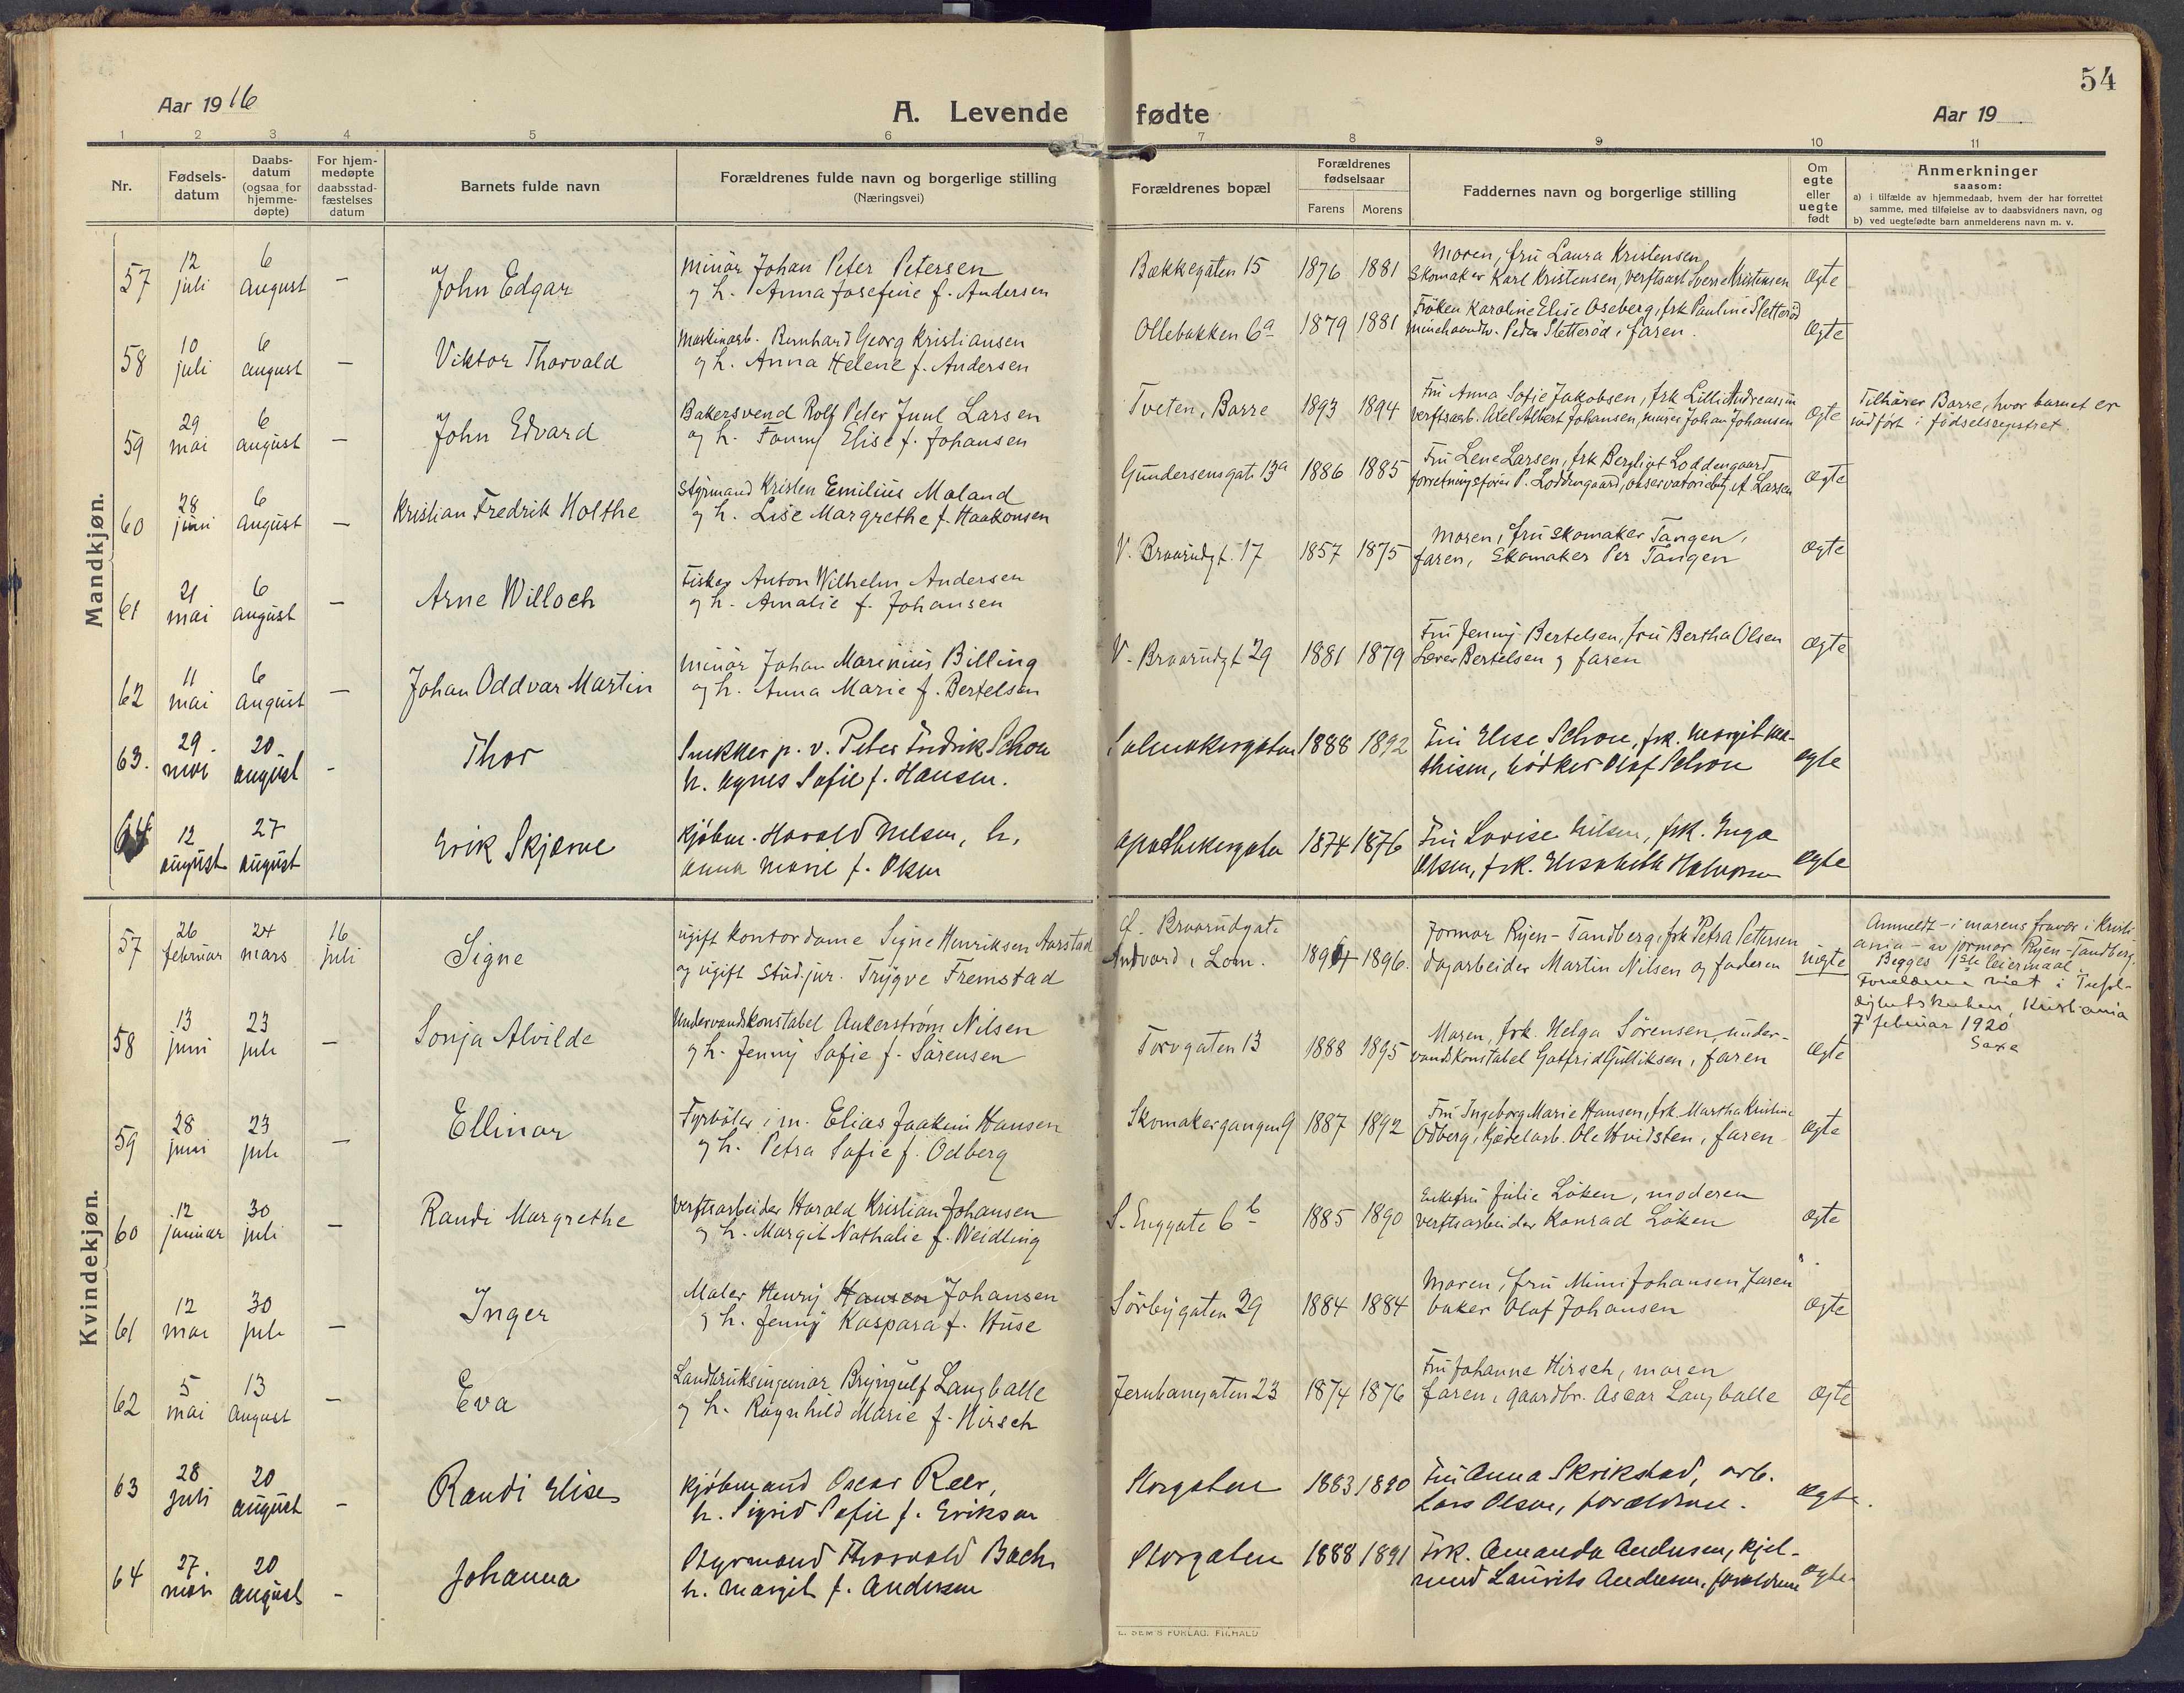 54
Aar 1916
A. Levende fødte
Aar 19
1 2 3 4 5 6 7 8 9 10 11
Nr.
Fødsels-
datum
Daabs-
datum
(ogsaa for
hjemme-
døpte)
For hjem-
medøpte
daabsstad-
fæstelses
datum
Barnets fulde navn
Forældrenes fulde navn og borgerlige stilling
(Næringsvei)
Forældrenes bopæl
Forældrenes
fødselsaar
Farens Morens
Faddernes navn og borgerlige stilling
Om
egte
eller
uegte
født
Anmerkninger
saasom:
a) i tilfælde av hjemmedaab, hvem der har forrettet
samme, med tilføielse av to daabsvidners navn, og
b) ved uegtefødte barn anmelderens navn m. v.
Mandkjøn.
57 12 juli 6 august — John Edgar
Minör Johan Peter Petersen
og h. Anna Josefine f. Andersen
Bakkegaten 15 1876 1881
Moren, fru Laura Kristensen
Skomaker Karl Kristensen, verftsarb Sverre Kristensen
Ægte
58 10 juli 6 august — Viktor Thorvald
Maskinarb. Bernhard Georg Kristiansen
og h. Anna Helene f. Andersen
Ollebakken 6a 1879 1881
Fröken Karoline Elise Oseberg, frk Pauline Sletteröd
minehaandv. Peder Sletteröd, faren.
Ægte
59 29 mai 6 august — John Edvard
Bakersvend Rolf Peter Juul Larsen
og h. Fanny Elise f. Johansen
Tveten, Borre 1893 1894
Fru Anna Sofie Jakobsen, frk Lilli Andreassen
verftsarb. Axel Albert Johansen, murer Johan Johansen
Ægte
Tilhører Borre, hvor barnet er
indfört i födselsregistret.
60 28 juni 6 august — Kristian Fredrik Holthe
Styrmand Kristen Emilius Moland
og h. Lise Margrethe f. Haakonsen
Gundersensgate 13a 1886 1885
Fru Lene Larsen, frk Bergliot Loddengaard
forretningsfører P. Loddengaard, observatoriebetj. A. Larsen
Ægte
61 21 mai 6 august — Arne Willoch
Fisker Anton Wilhelm Andersen
og h. Amalie f. Johansen
V. Braarudgt. 17 1857 1875
Moren, fru skomaker Tangen,
faren, Skomaker Per Tangen
Ægte
62 11 mai 6 august — Johan Oddvar Martin
Minör Johan Marinius Billing
og h. Anna Marie f. Bertelsen
V. Braarudgt 29 1881 1879
Fru Jenny Bertelsen, fru Bertha Olsen
Bertelsen og faren
Ægte
63. 29. mai 20 august - Thor
Snekker p. v. Peter Fredrik Schou
h. Agnes Sofie f. Hansen.
Salmakergaten 1888 1892
Fru Elise Schou, frk. Margit Ma-
thisen, bödker Olaf Schou
egte
64 12 august 27 august Erik Skjerve
Kjöbm. Harald Nilsen, h.
Anna Marie f. Olsen
Apothekergaten 1874 1876
Fru Lovise Nilsen, frk. Inga
Olsen, frk. Elisabeth Halvorsen
egte
Kvindekjøn.
57 26 februar 24 mars 16 juli Signe
ugift kontordame Signe Henriksen Aarstad
og ugift stud.jur. Trygve Fremstad
Braarudgate
Andvord i Lom. 1894 1896.
Jormor Ryen-Tandberg, frk Petra Pettersen
dagarbeider Martin Nilsen og faderen
uægte
Anmeldt - i morens fravær i Kristi-
ania - av jormor Ryen-Tandberg.
Begges 1ste leiermaal.
Forældrene viet i Trefol-
dighetskirken, Kristiania
7 februar 1920
58 13 juni 23 juli — Sonja Alvilde
Undervandskonstabel Ankerstrøm Nilsen
og h. Jenny Sofie f. Sörensen
Torvgaten 13 1888 1895
Moren, frk. Helga Sörensen, under-
vandskonstabel Gotfrid Gulliksen, faren
Ægte
59 28 juni 23 juli — Ellinor
Fyrböter i m. Elias Joakim Hansen
og h. Petra Sofie f. Odberg
Skomakergangen 9 1887 1892
Fru Ingeborg Marie Hansen, frk. Martha Kristine
Odberg, kjedelarb. Ole Hvidsten, faren
Ægte
60 12 januar 30 juli — Randi Margrethe
Verftsarbeider Harald Kristian Johansen
og h. Margit Nathalie f. Weidling
S. Enggate 6b 1885 1890
Enkefru Julie Löken, moderen
verftsarbeider Konrad Löken
Ægte
61 12 mai 30 juli — Inger
Maler Henry Hansen Johansen
og h. Jenny Kaspara f. Huse
Sörbygaten 29 1884 1884
Moren, fru Mimi Johansen, faren
baker Olaf Johansen
Ægte
62 5 mai 13 august — Eva
Landbruksingeniör Bryngulf Langballe
og h. Ragnhild Marie f. Hirsch
Jernbanegaten 23 1874 1876
Fru Johanne Hirsch, moren
faren, gaardbr. Oscar Langballe
Ægte
63 28 juli 20 august - Randi Elise
Kjöbmand Oscar
h. Sigrid Sofie f. Eriksen
Storgaten 1883 1890
Fru Anna Skrikstad, arb.
Lars Olsen, forældrene.
Ægte.
64 27. mai 20 august - Johanna
Styrmand Thorvald Bach
h. Margit f. Andersen
Storgaten 1888 1891
Frk. Amanda Andersen, kjel-
Laurits Andersen, forældrene
Ægte.
E. SEM'S FORLAG. FR.HALD